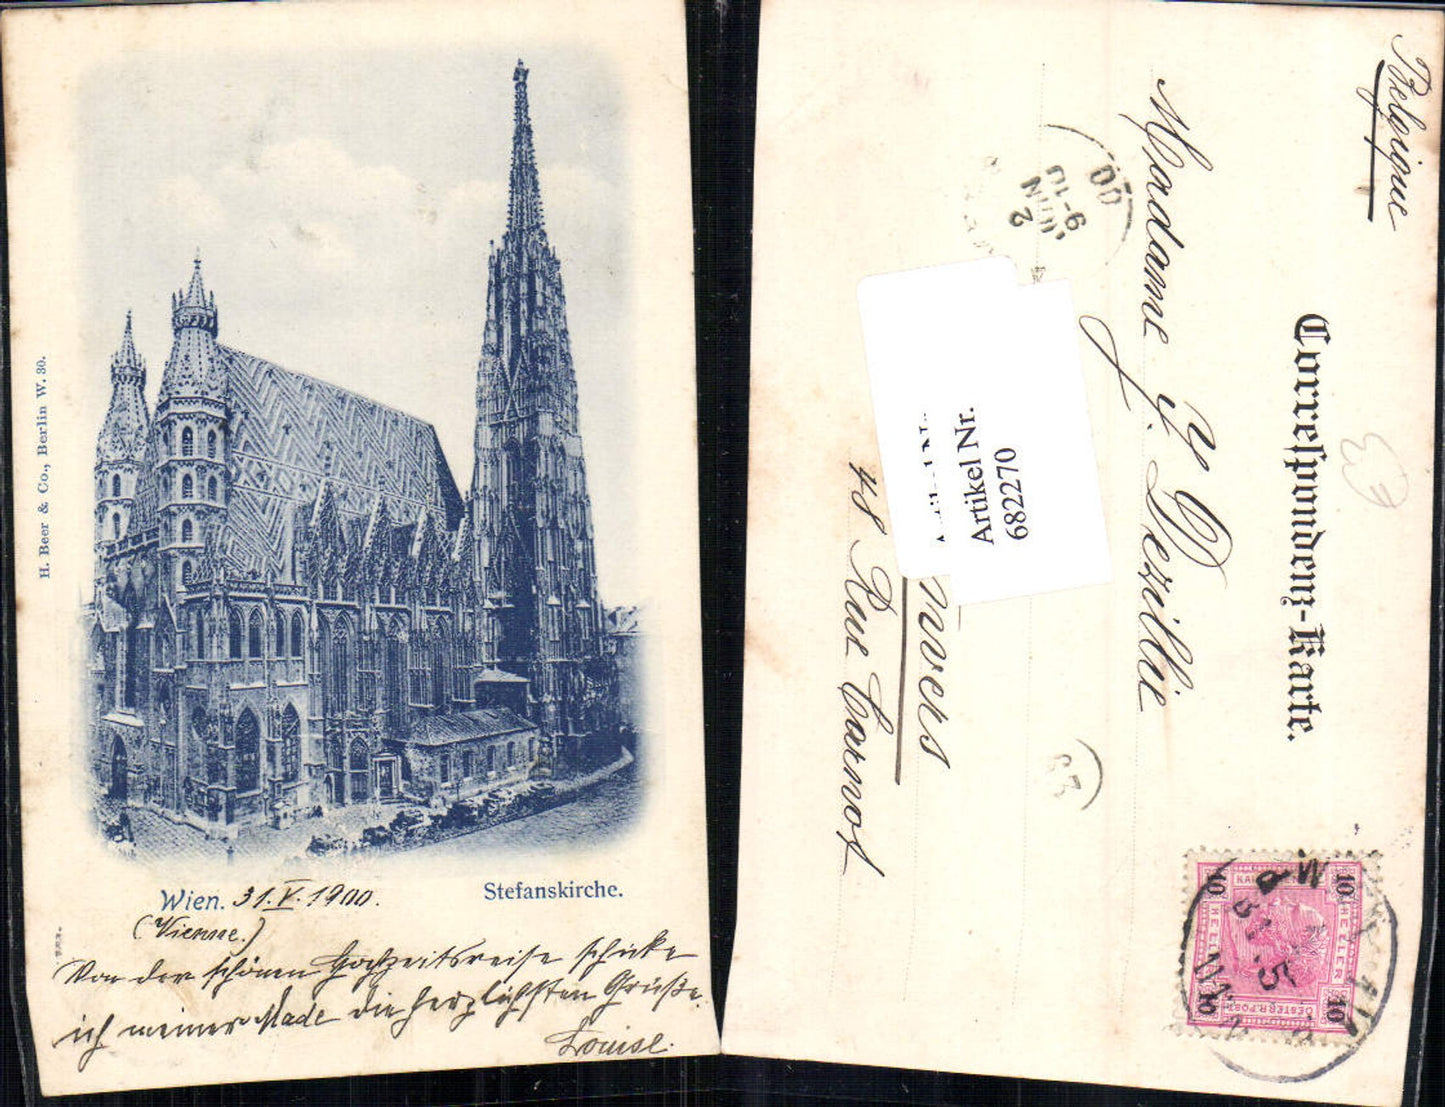 H. Beer & Co., Berlin W. 30.
Wien. 31.V.1900.
Stefanskirche.
(Vienne.)
Von der schönen Hochzeitsreise schicke
ich meiner Made die herzlichsten Grüße.
Louise.
Belgique
Correspondenz-Karte.
Madame Y. Dezillie
Anvers
48 Rue Carnot
Artikel Nr.
682270
9-10
JUIN
2
00
10 HELLER 10
10 HELLER 10
OESTERR. POST
WIEN